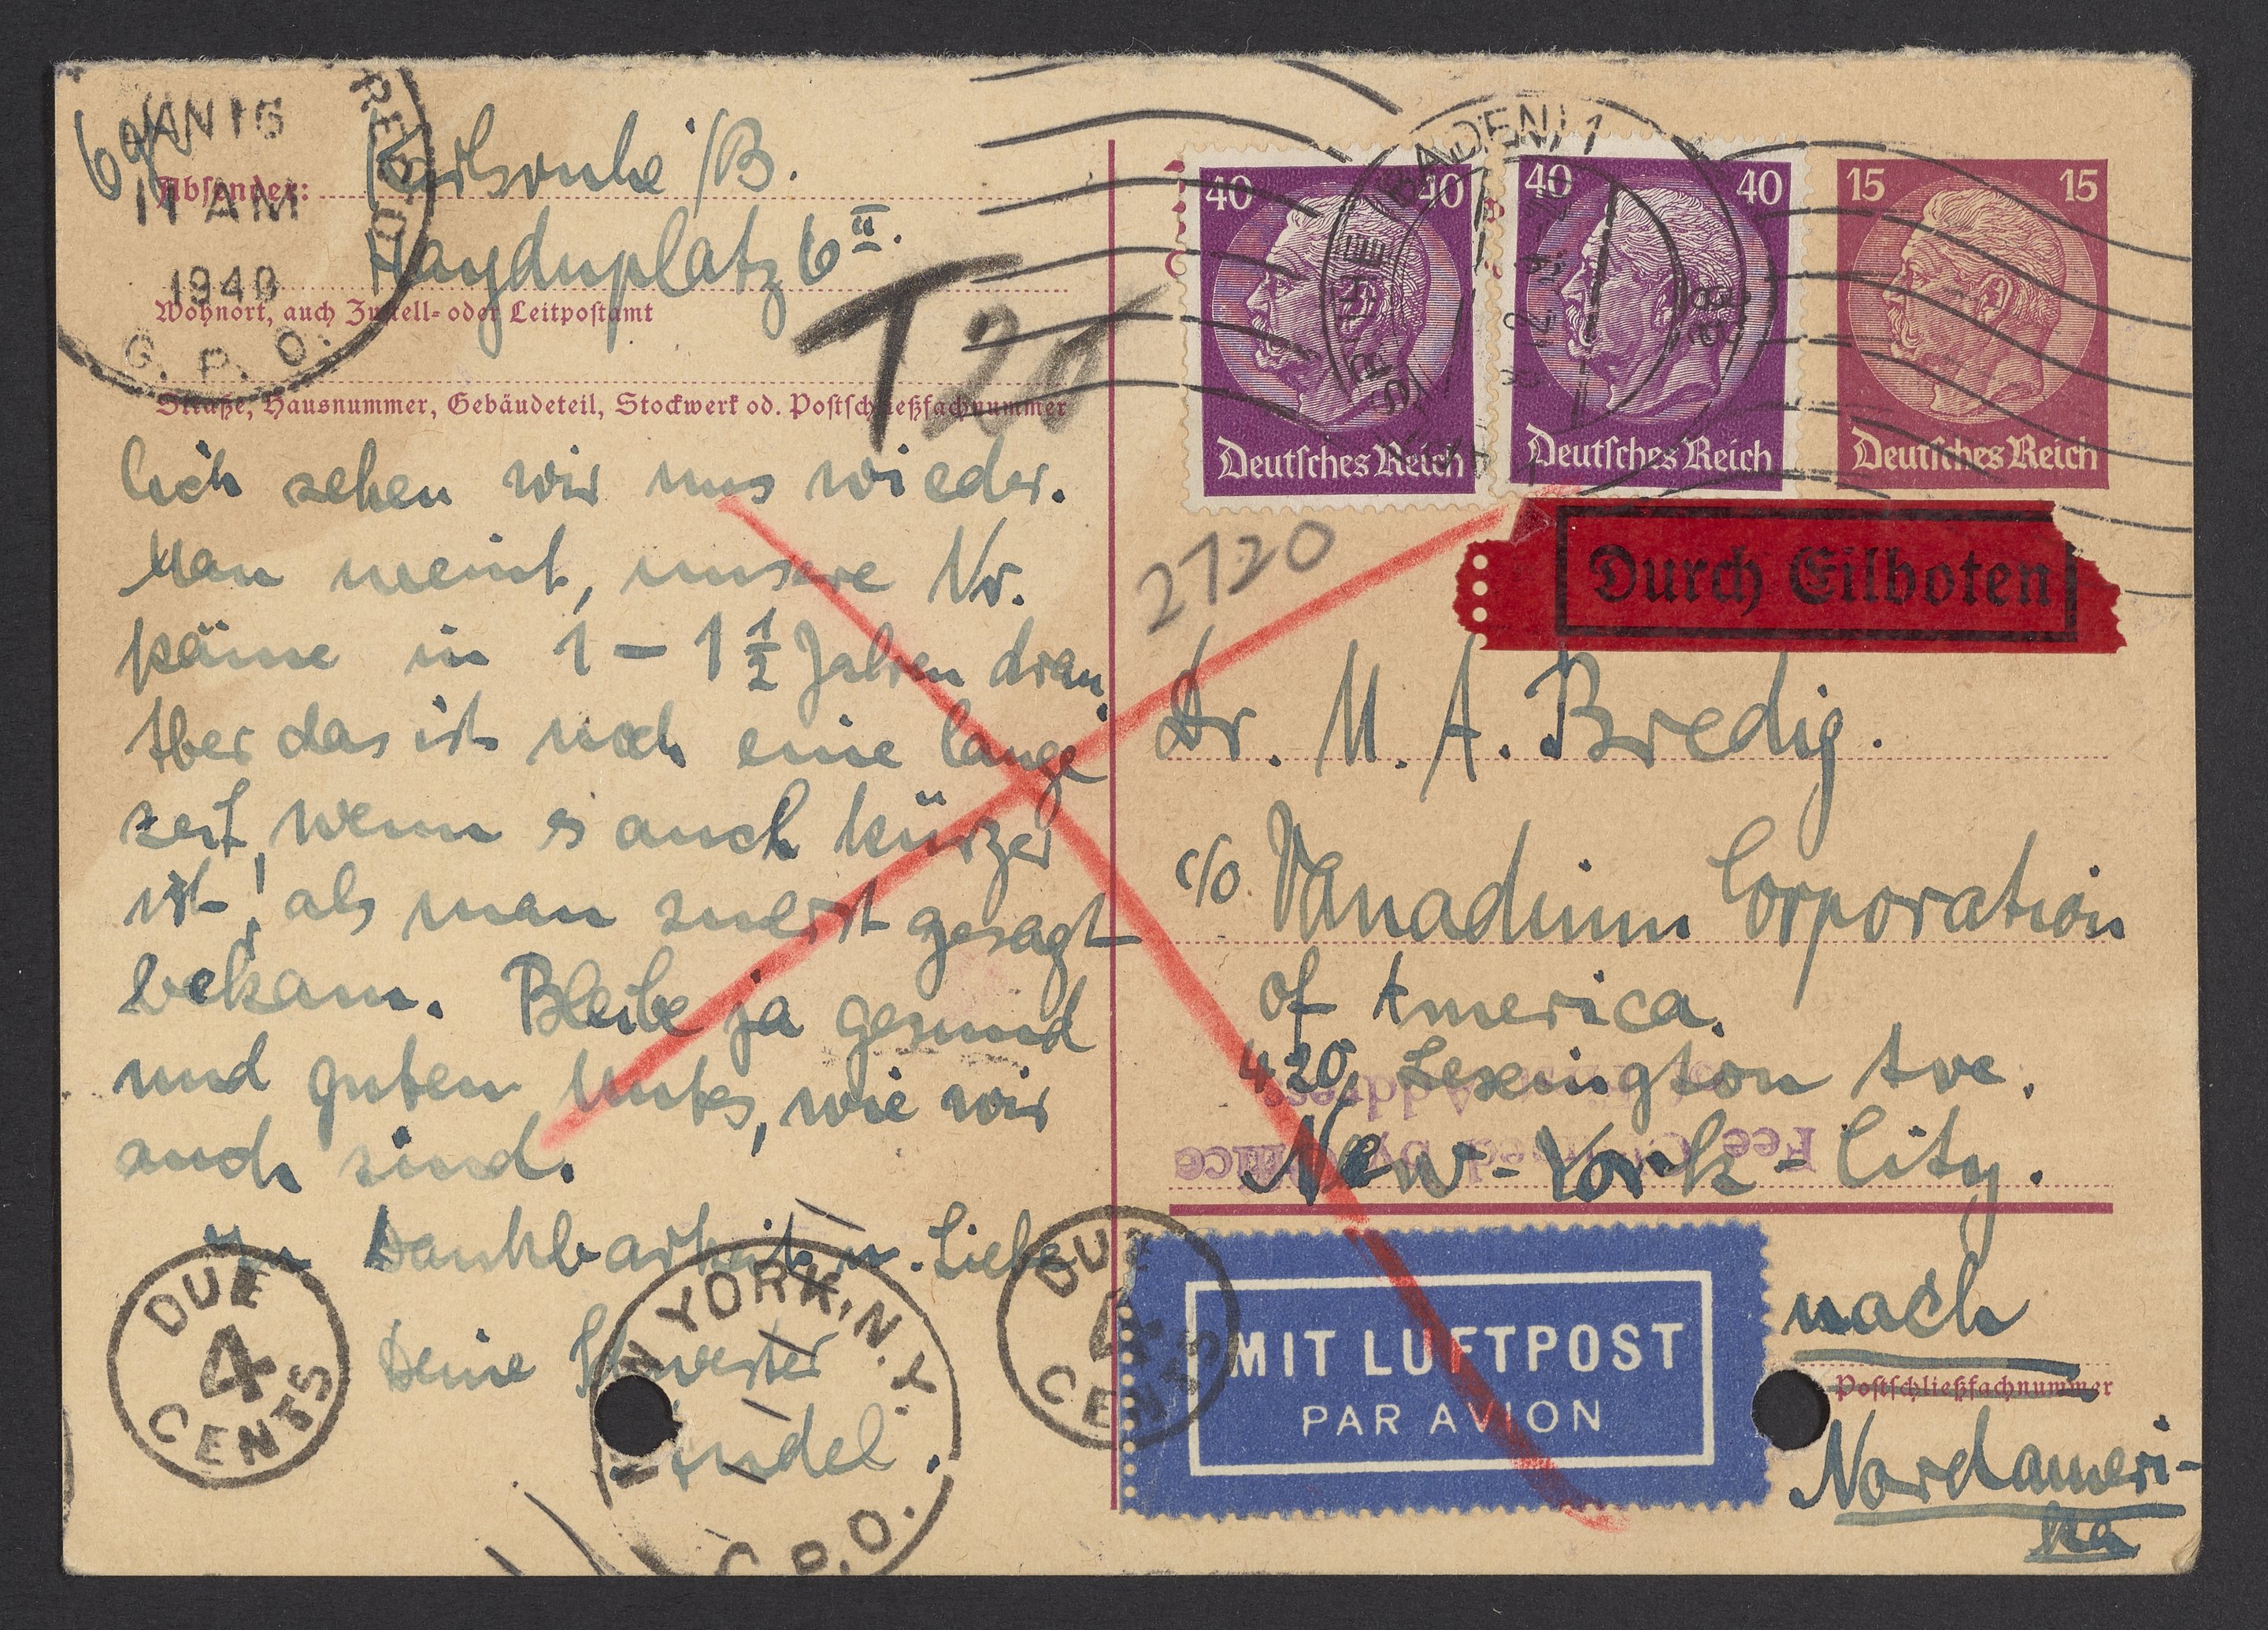 JAN 16
11 AM
1940
REC'D
G. P. O.
Absender:
Karlsruhe /B.
Haydnplatz 6 II.
Wohnort, auch Zustell- oder Leitpostamt
T 20
Straße, Hausnummer, Gebäudeteil, Stockwerk od. Postschließfachnummer
lich sehen wir uns wieder.
Man meint, unsere Nr.
käme in 1 - 1 1/2 Jahren dran.
Aber das ist noch eine lange
Zeit, wenn s auch kürzer
ist, als man zuerst gesagt
bekam. Bleibe ja gesund
und guten Mutes, wie wir
auch sind.
In Dankbarkeit u. Liebe
Deine Schwester
DUE
4
CENTS
N YORK, N.Y.
G.P.O.
DUE
4
CENTS
40 40
Deutsches Reich
40 40
Deutsches Reich
15 15
Deutsches Reich
(BADEN) 1
2720
Durch Eilboten
Dr. M. A. Bredig.
c/o. Vanadium Corporation
of America.
420, Lexington Ave.
New-York-City.
MIT LUFTPOST
PAR AVION
nach
Postschließfachnummer
Nordameri-
ka